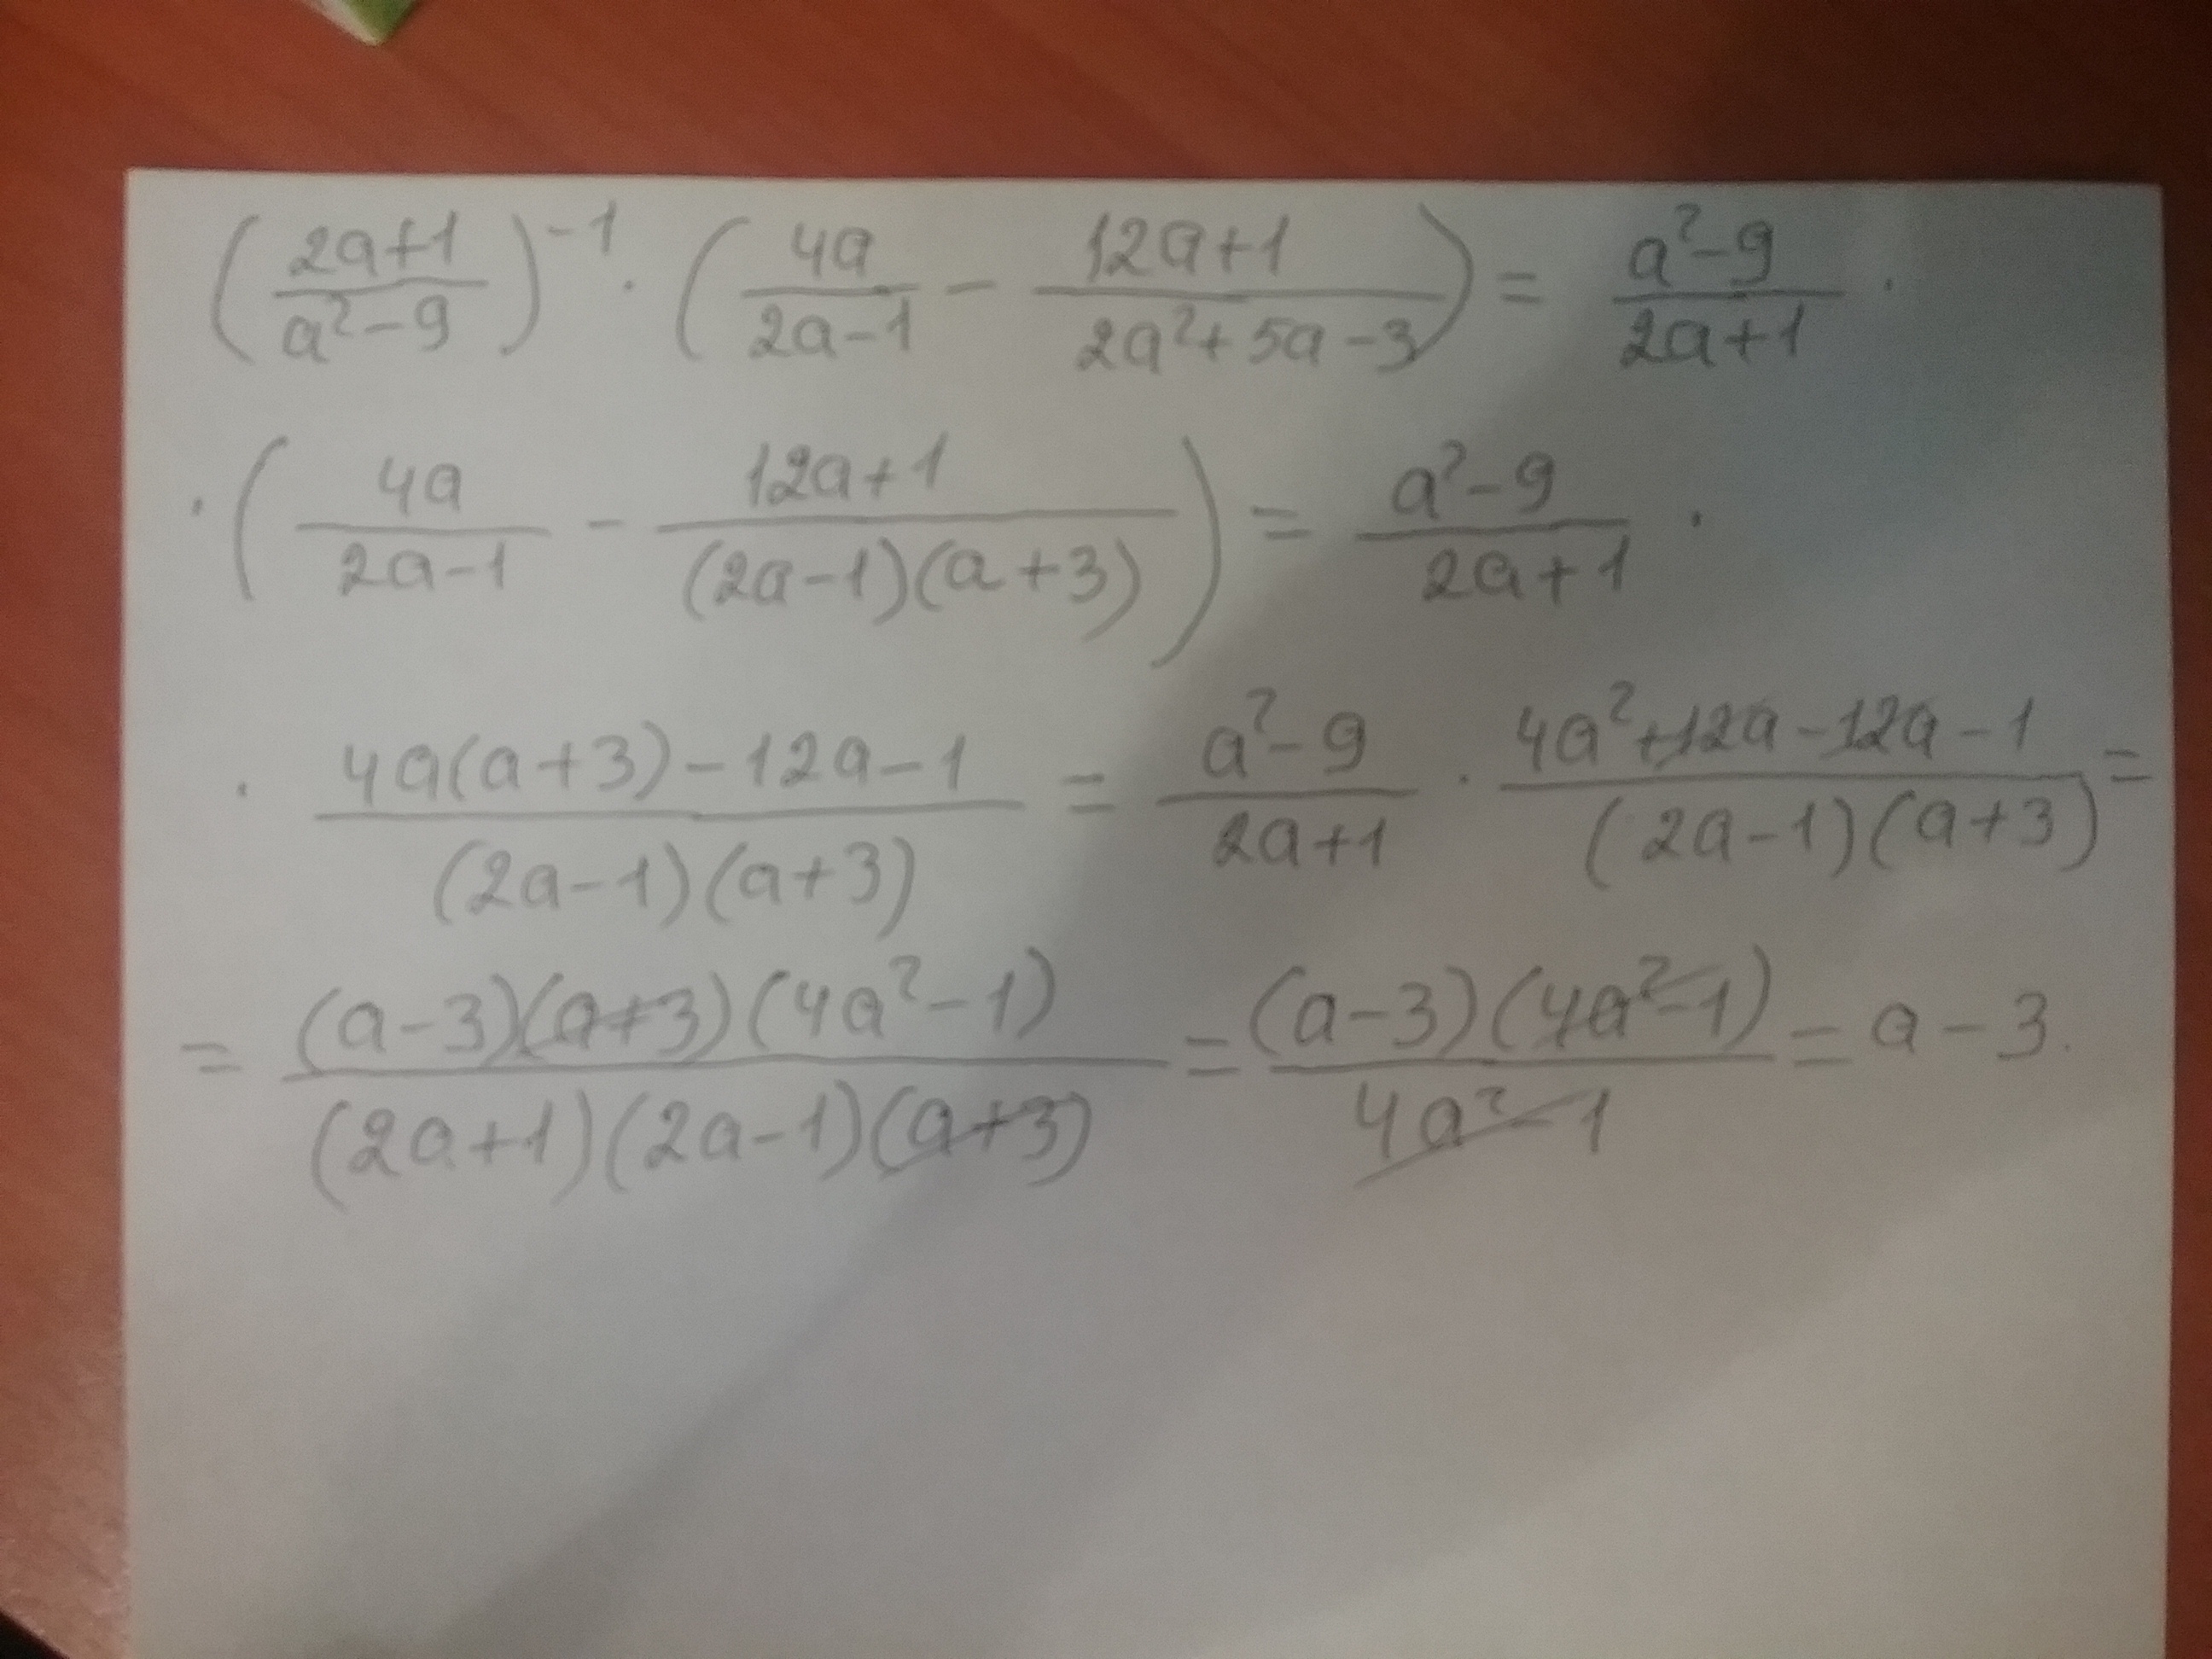 (2a+1 / a²-9)⁻¹ · (4a / 2a-1 - 12a+1 / 2a²+5a-3) = a²-9 / 2a+1 ·
· (4a / 2a-1 - 12a+1 / (2a-1)(a+3)) = a²-9 / 2a+1 ·
· 4a(a+3)-12a-1 / (2a-1)(a+3) = a²-9 / 2a+1 · 4a²+12a-12a-1 / (2a-1)(a+3) =
= (a-3)(a+3)(4a²-1) / (2a+1)(2a-1)(a+3) = (a-3)(4a²-1) / 4a²-1 = a-3.